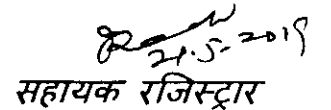 21.5.2019
सहायक रजिस्ट्रार